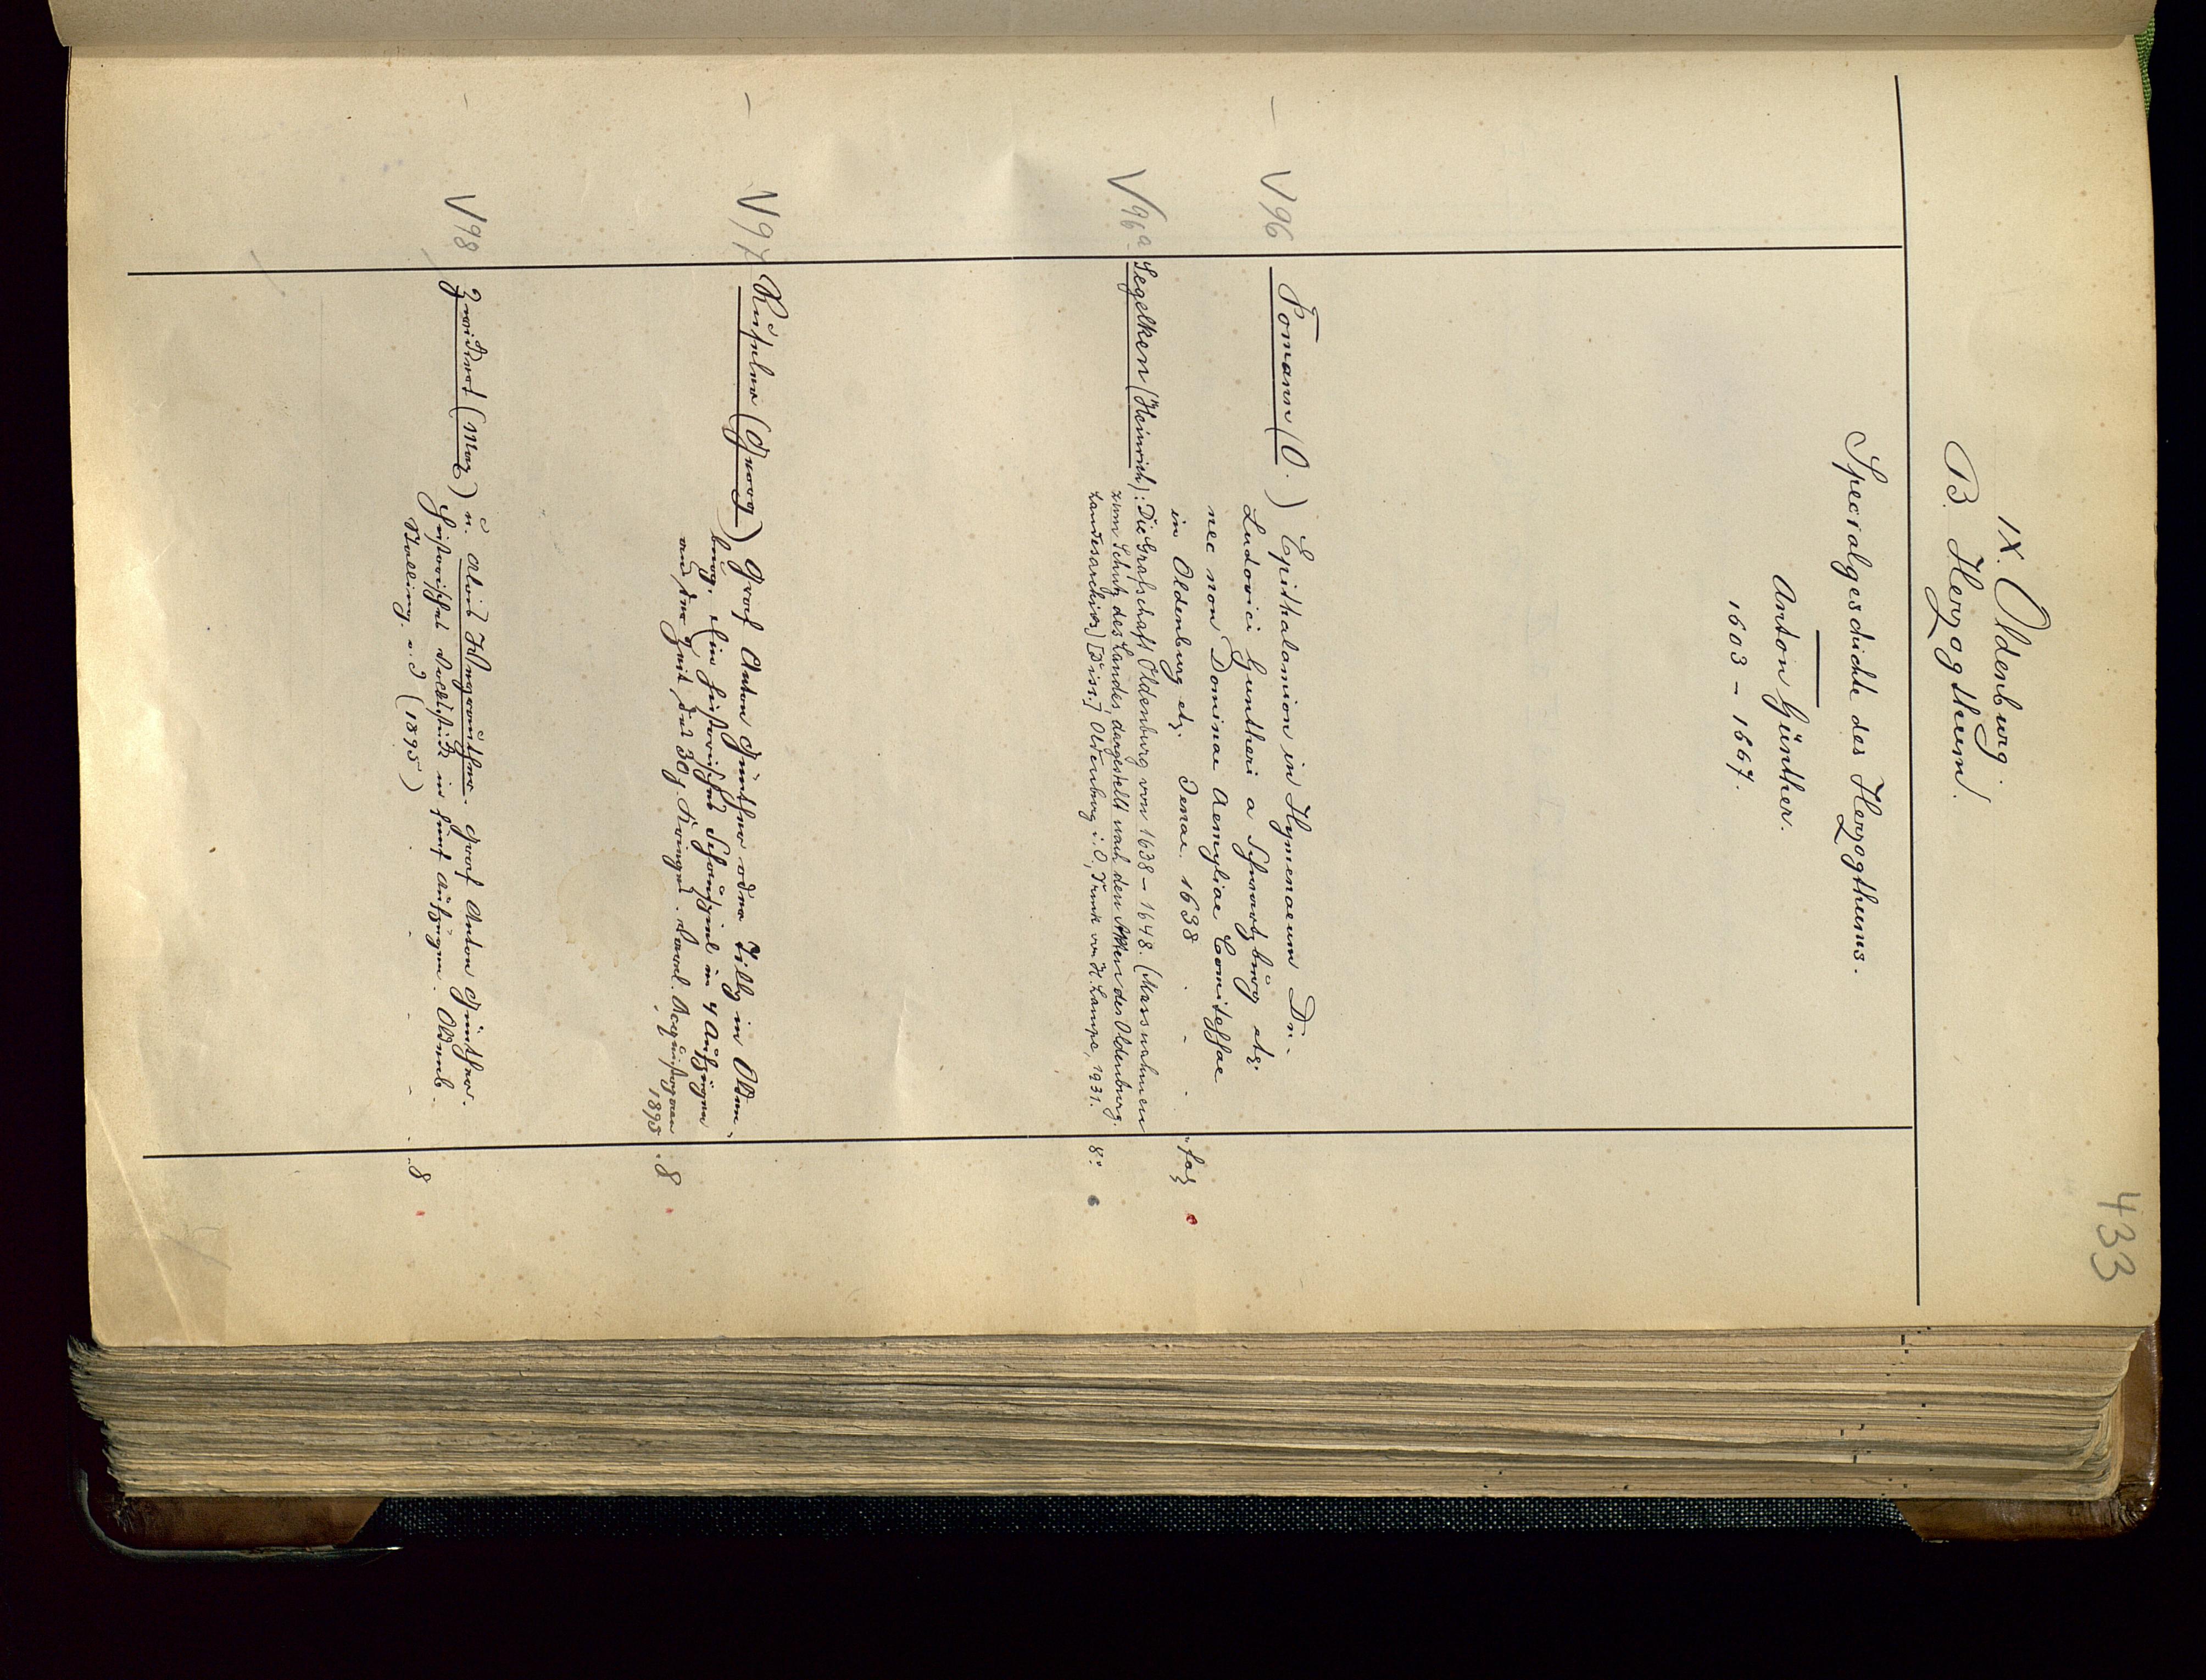 433
IX. Oldenburg.
B. Herzogthum.
Specialgeschichte des Herzogthums.
Anton Günther.
1603 - 1667.
V 96 Tomann (O.) Epithalamion in Hymenaeum Dn.
Ludovici Guntheri a Schwartzburg etz.
nec non Dominae Aemyliae Comitessae
in Oldenburg etz. Jenae. 1638 fol
V 96a Segelken (Heinrich): Die Grafschaft Oldenburg von 1638-1648. (Massnahmen
zum Schutz des Landes, dargestellt nach den Akten des Oldenburg.
Landesarchivs) [Diss.] Oldenburg i. O., Druck von H. Lampe, 1931. 8°
V 97 Ruseler (Georg) Graf Anton Günther oder Tilly in Olden-
burg. Ein historisches Schauspiel in 4 Aufzügen
aus der Zeit des 30j. Krieges. Varel. Acquistapace
1895. 8
V 98 Zwickert (Max) u. Alois Wegewitz. Graf Anton Günther.
Historisches Volksstück in fünf Aufzügen. Oldenb.
Stalling. o. J (1895) 8